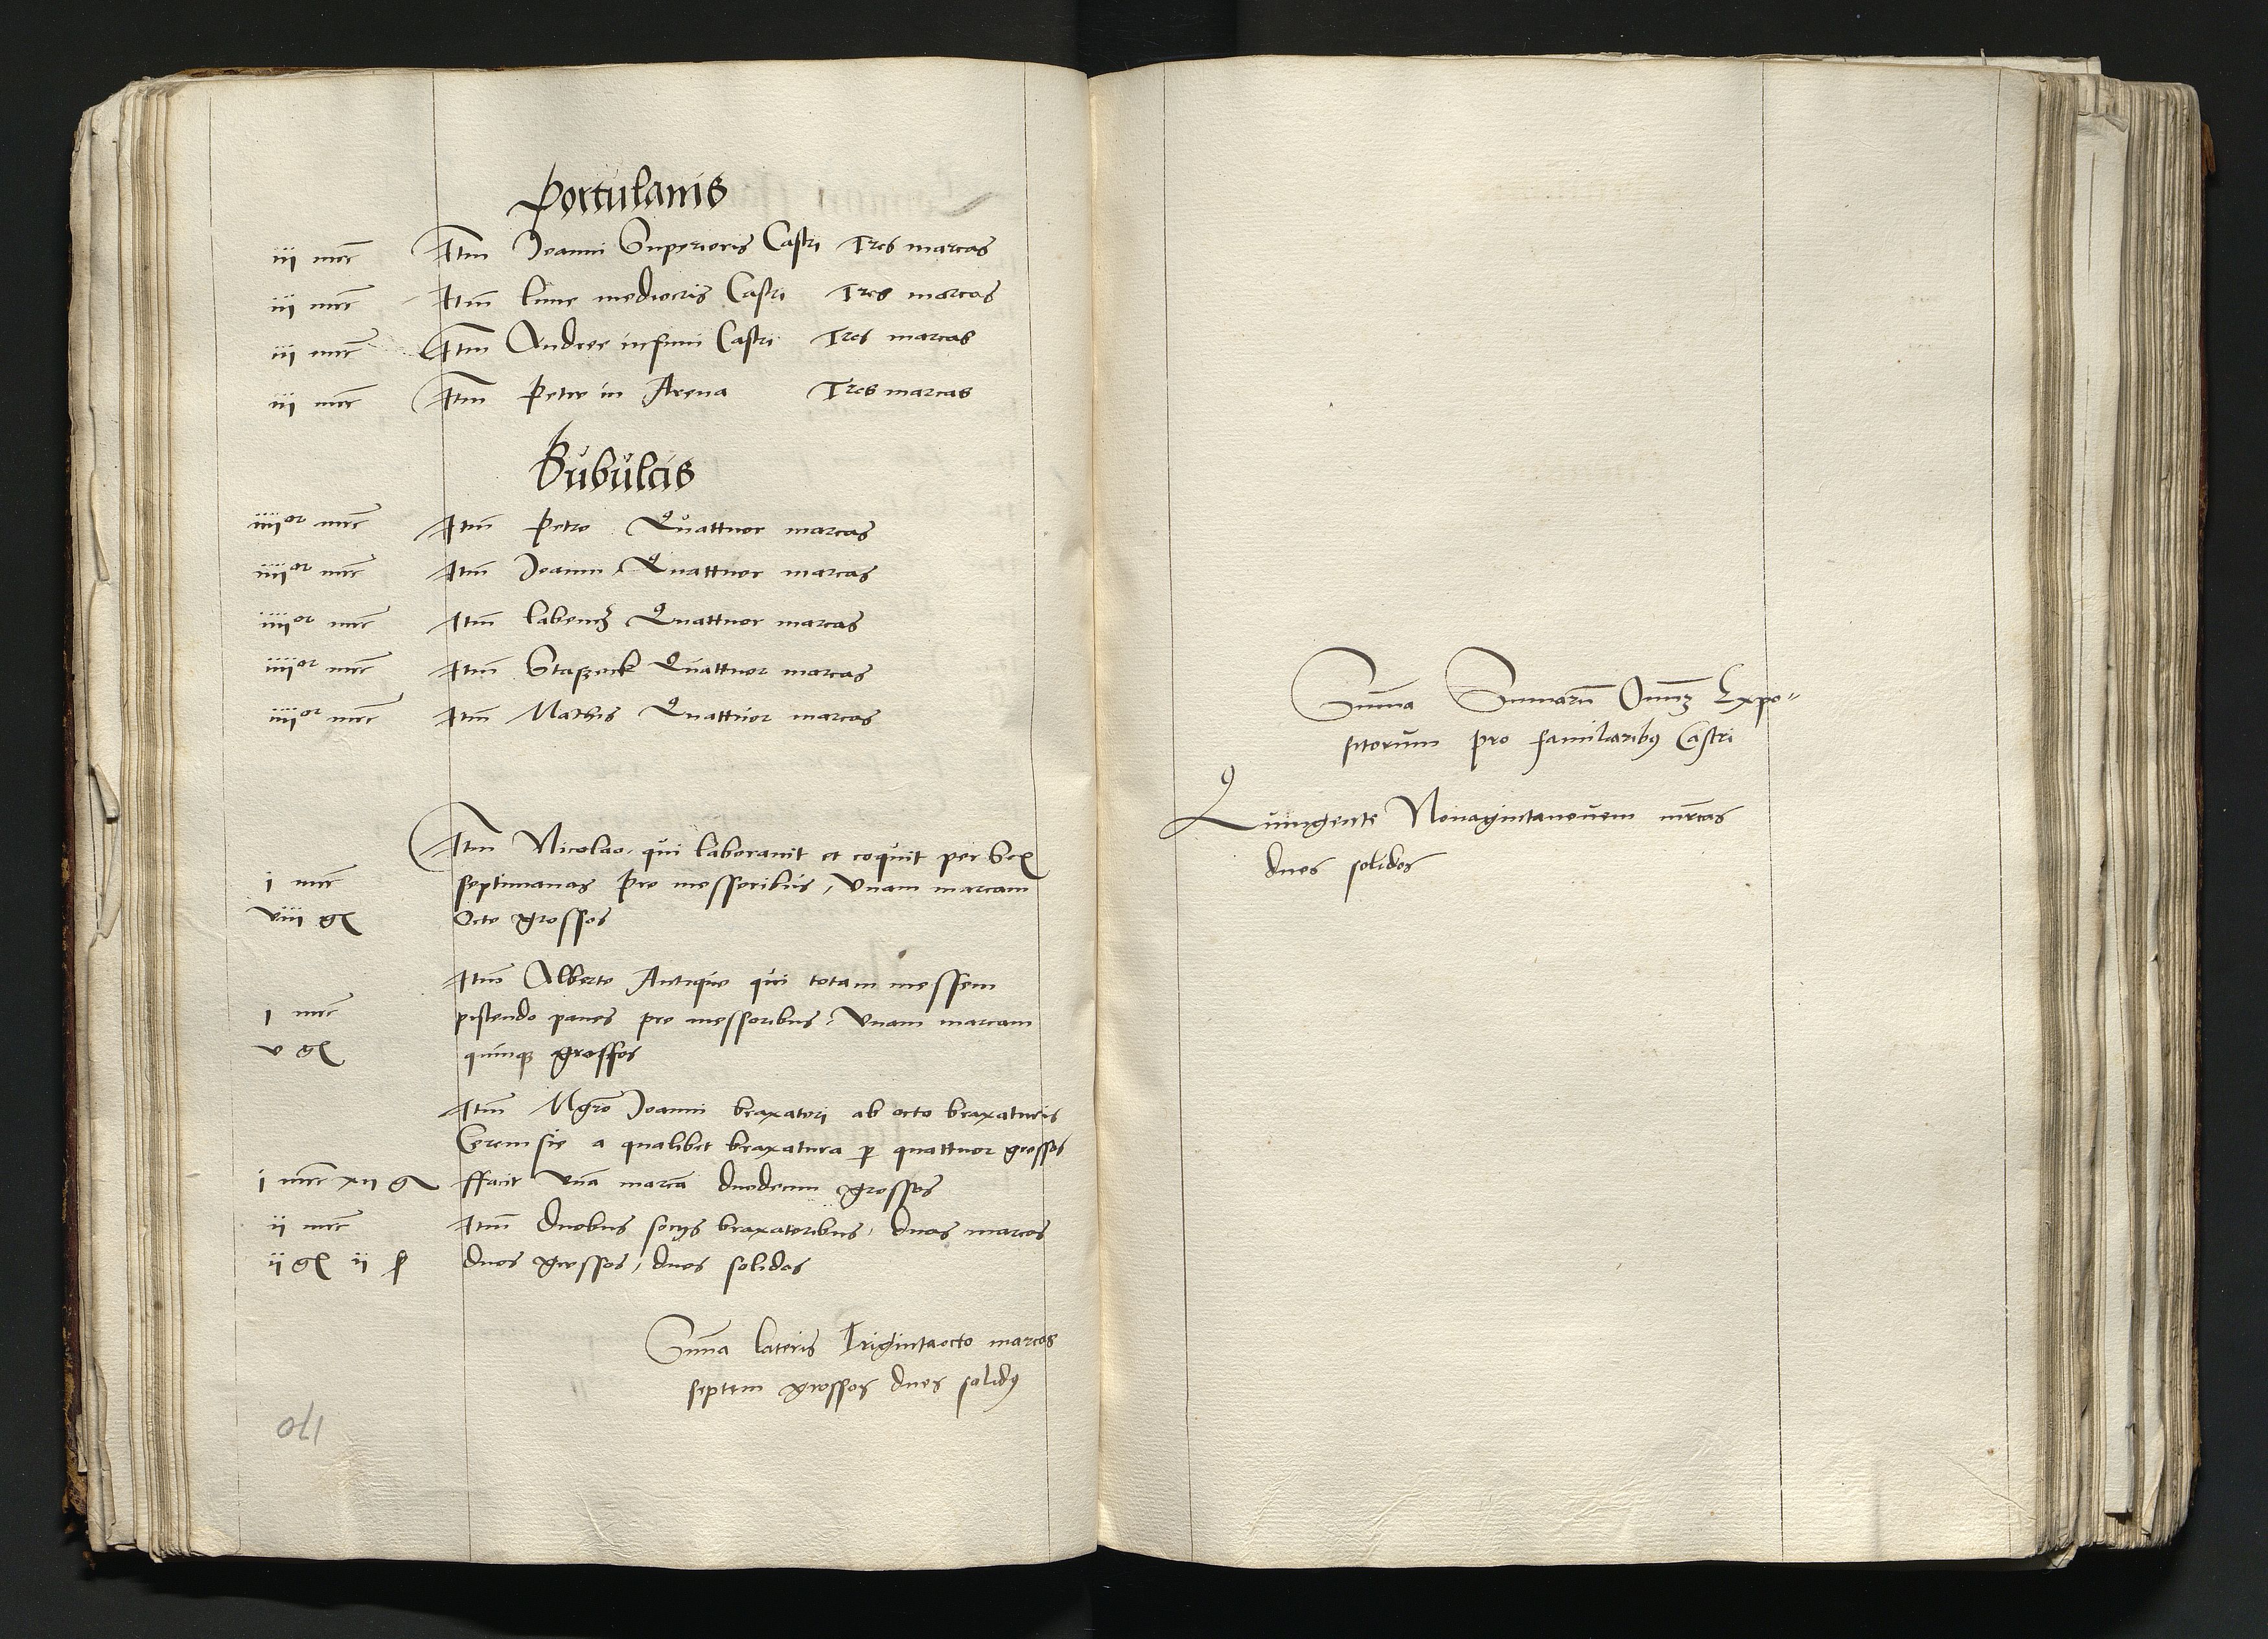 Portulanis
iii mrc Itm Joanni Superioris Castri Tres marcas
iii mrc Itm Lune mediocris Castri Tres marcas
iii mrc Itm Andree infimi Castri Tres marcas
iii mrc Itm Petro in Arena Tres marcas
Bubulcis
iiii or mrc Itm Petro Quattuor marcas
iiii or mrc Itm Joanni Quattuor marcas
iiii or mrc Itm Labencz Quattuor marcas
iiii or mrc Itm Staszeck Quattuor marcas
iiii or mrc Itm Mathis Quattuor marcas
Itm Nicolao qui laboravit et coquit per Sex
i mrc septimanas pro messoribus, Unam marcam
viii g Octo grossos
Itm Alberto Antiquo qui totam messem
i mrc pistendo panes pro messoribus, Unam marcam
v g quinque grossos
Itm Mgro Joanni braxatori ab octo braxaturis
Cerevisie a qualibet braxatura p quattuor grossos
i mrc xii g ffacit Una marca duodecim grossos
ii mrc Itm duobus socijs braxatoribus, duas marcas
ii g ii s duos grossos, duos solidos
Suma lateris Trigintaocto marcas
septem grossos duos solidos
170
Suma Sumaru Omnium Expo-
sitorum pro familiaribus Castri
Quingente Nonagintanovem mrcas
duos solidos